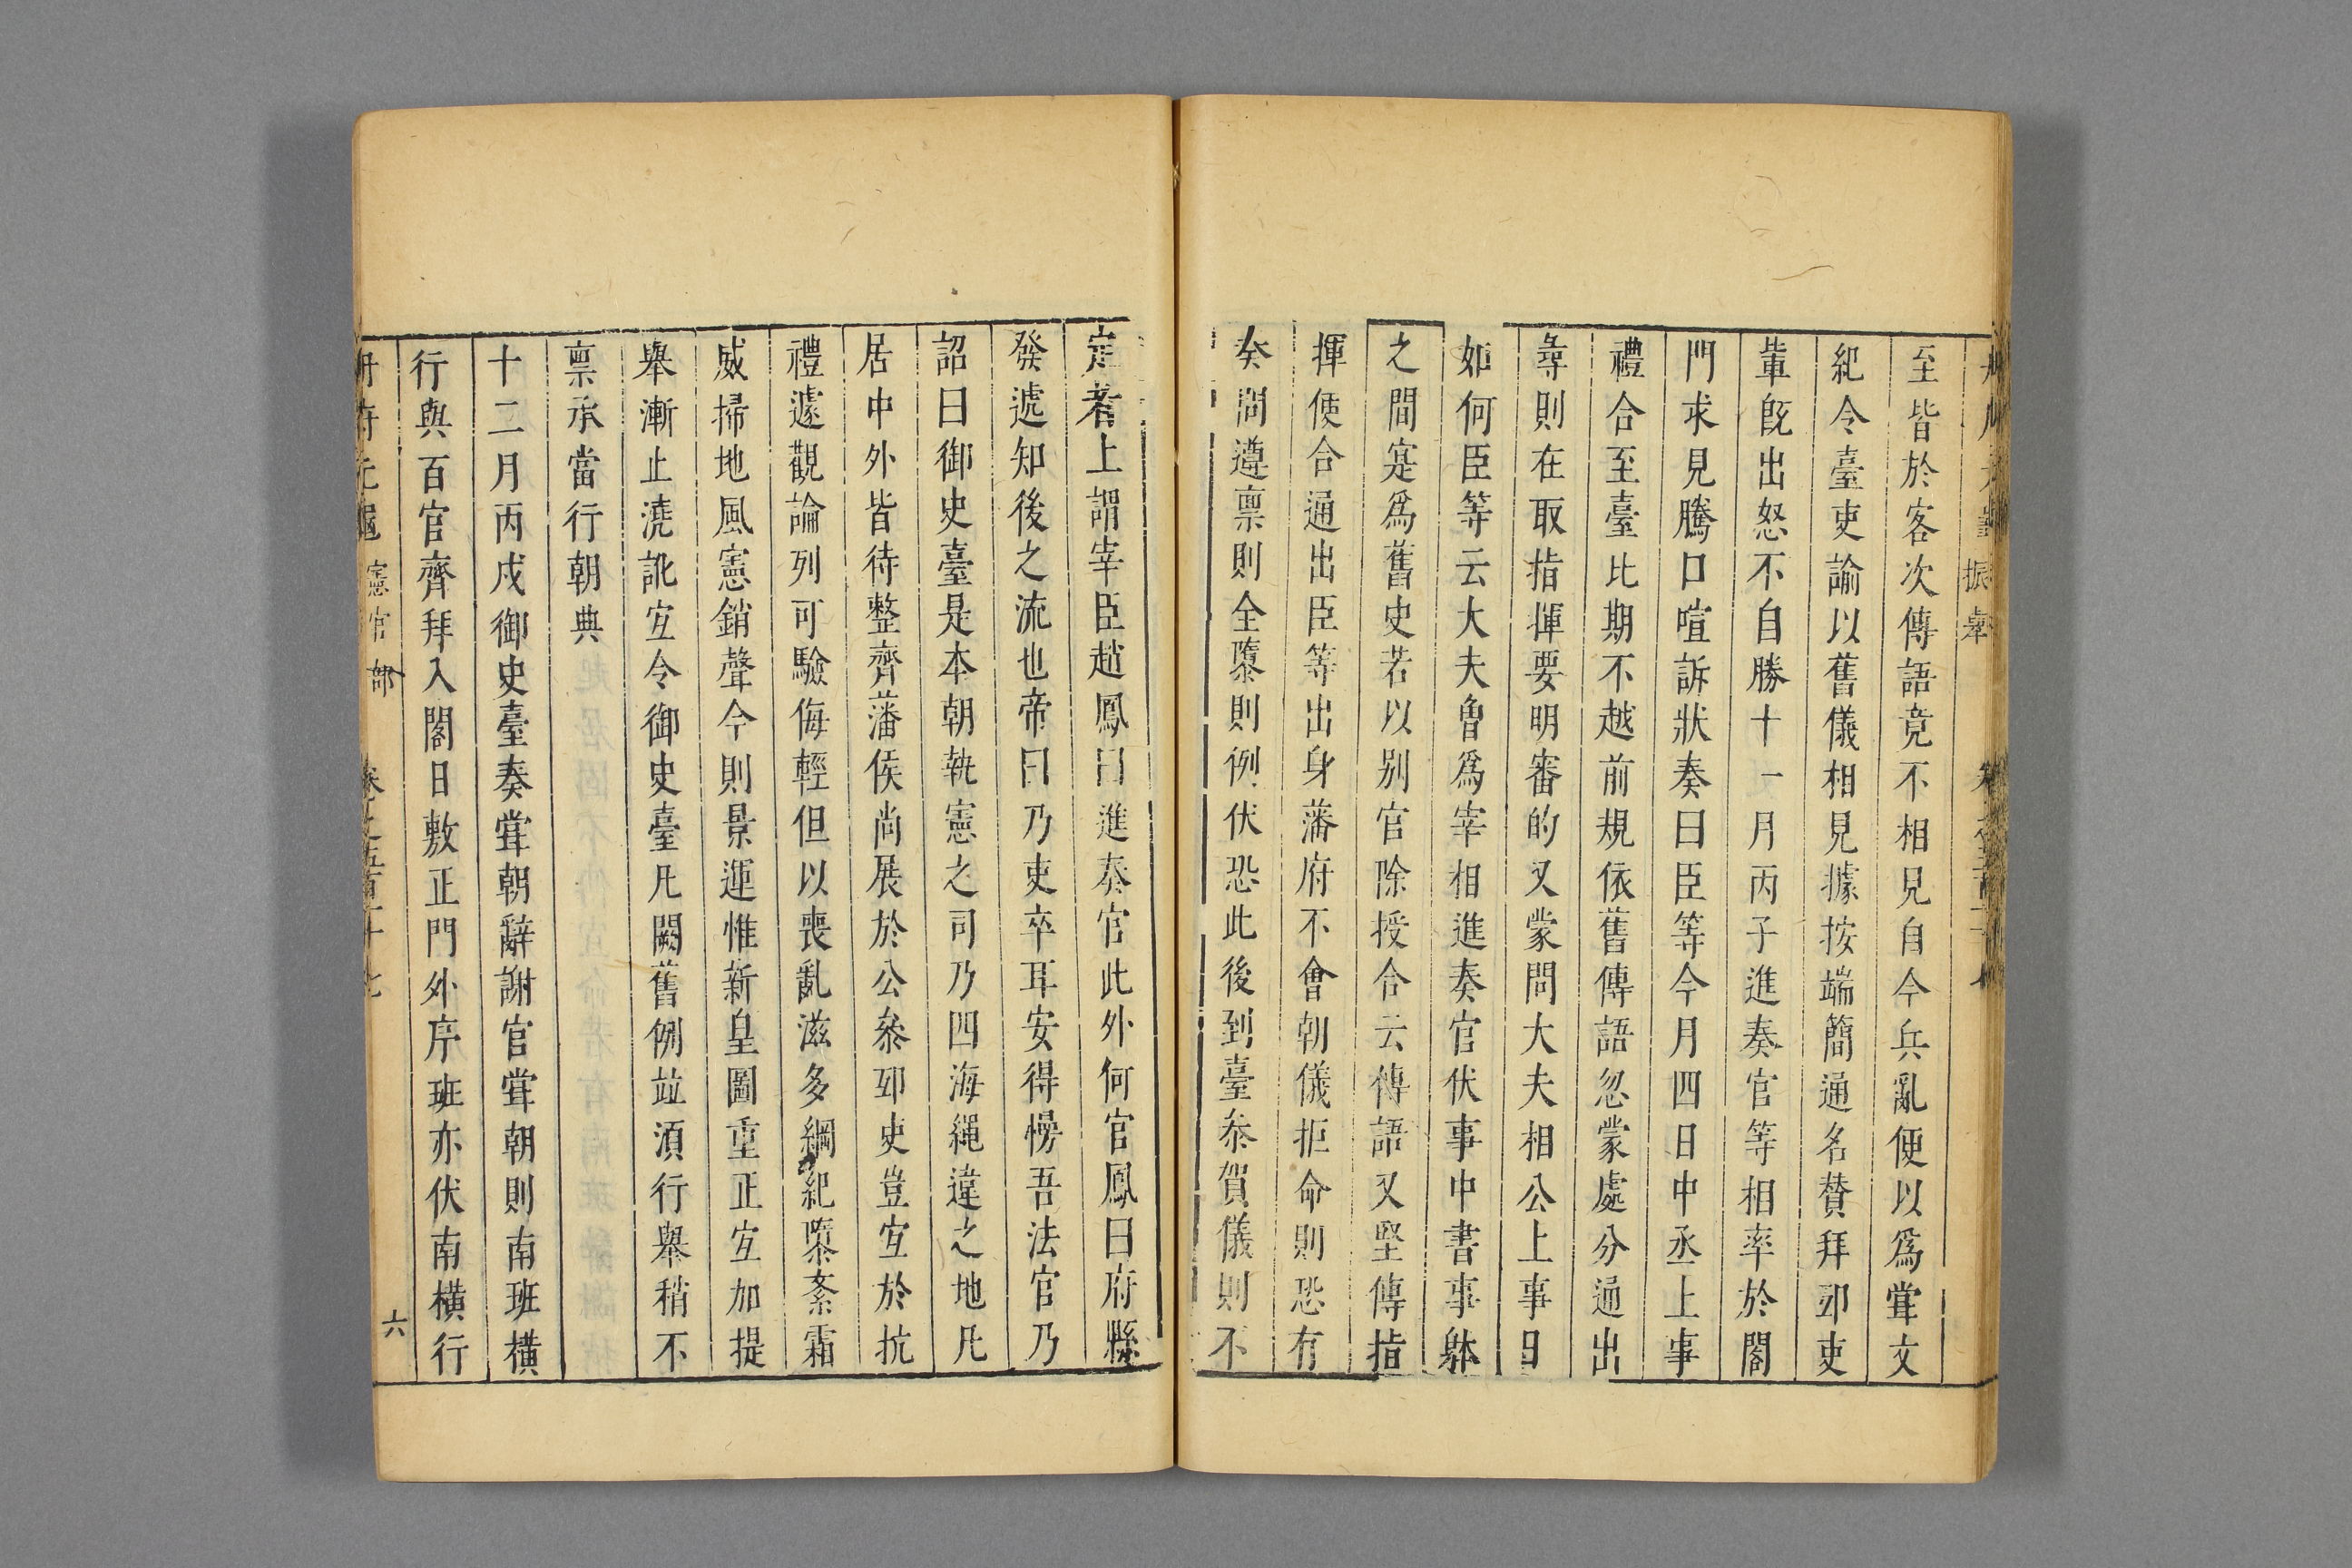 振舉
至皆於客次傳語竟不相見自今兵亂便以爲甞文
紀令臺吏諭以舊儀相見據按端簡通名賛拜邸吏
軰旣出怒不自勝十一月丙子進奏官等相率於閤
門求見騰口喧訴狀奏曰臣等今月四日中丞上事
禮合至臺比期不越前規依舊傳語忽蒙處分通出
尋則在取指揮要明審的又蒙問大夫相公上事日
如何臣等云大夫曽爲宰相進奏官伏事中書事躰
之間寔爲舊史若以别官除授合云傳語又堅傳指
揮使合通出臣等出身藩府不會朝儀拒命則恐有
奏問遵禀則全隳則例伏恐此後到臺叅賀儀則不
定者上謂宰臣趙鳳曰進奏官此外何官鳳曰府縣
發遞知後之流也帝曰乃吏卒耳安得慢吾法官乃
詔曰御史臺是本朝執憲之司乃四海繩違之地凡
居中外皆待整齊藩侯尚展於公叅邸吏豈宐於抗
禮遽觀論列可驗侮輕但以喪亂滋多綱紀隳紊霜
威掃地風憲銷聲今則景運惟新皇圖重正宐加提
舉漸止澆訛宐令御史臺凡闕舊例竝湏行舉稍不
禀承當行朝典
十二月丙戍御史臺奏甞朝辭謝官甞朝則南班橫
行與百官齊拜入閤日敷正門外序班亦伏南橫行
冊府元龜 憲官部 卷之五百十七 六